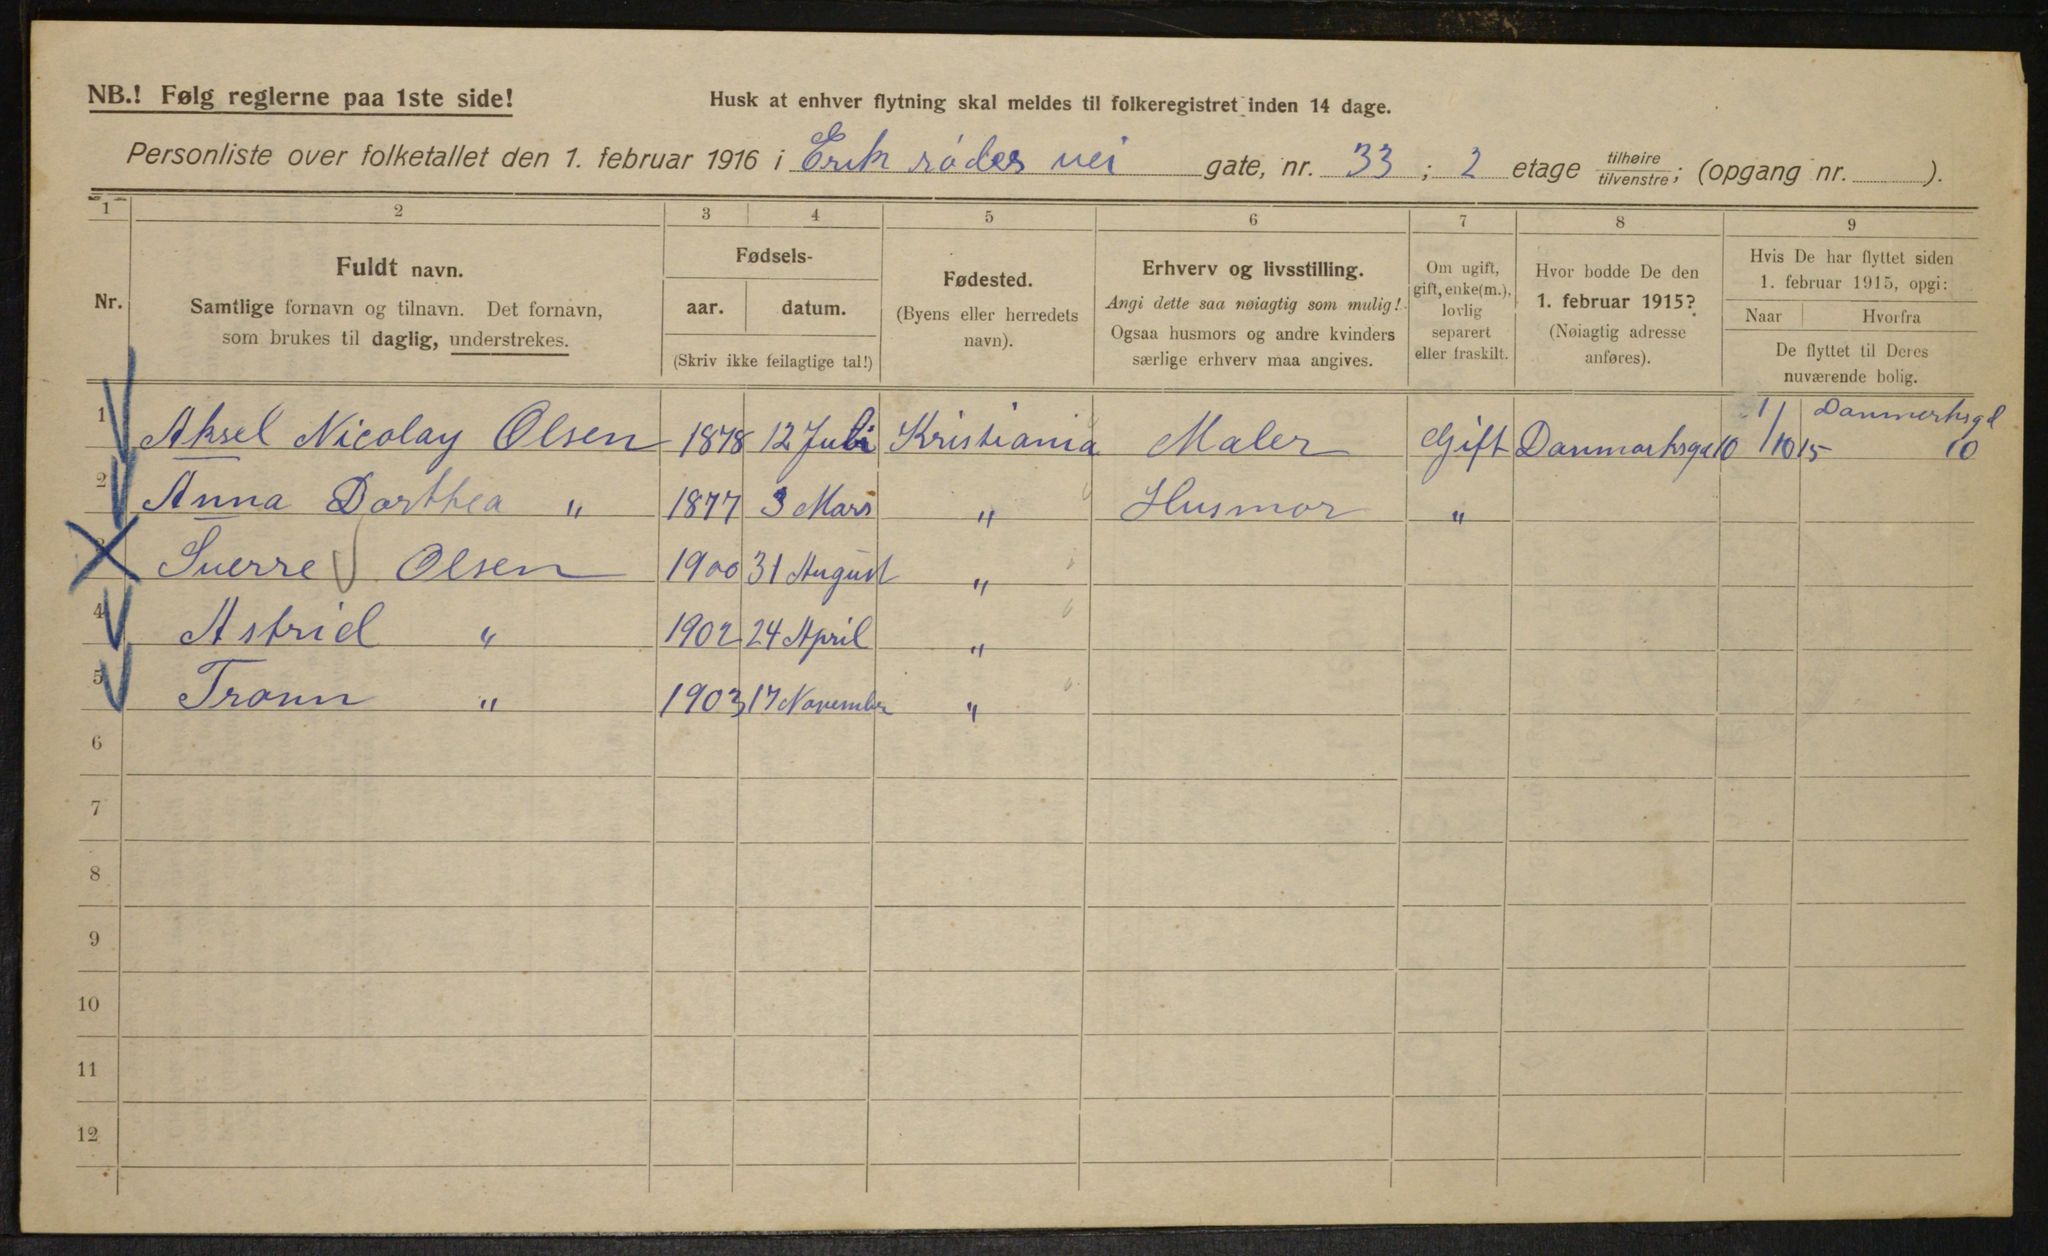 NB.! Følg reglerne paa 1ste side!
Husk at enhver flytning skal meldes til folkeregistret inden 14 dage.
Personliste over folketallet den 1. februar 1916 i Erik rødes vei gate, nr. 33 ; 2 etage tilhøire tilvenstre; (opgang nr. ).
1 2 3 4 5 6 7 8 9
Nr.
Fuldt navn.
Samtlige fornavn og tilnavn. Det fornavn,
som brukes til daglig, understrekes.
Fødsels-
aar. datum.
(Skriv ikke feilagtige tal!)
Fødested.
(Byens eller herredets
navn).
Erhverv og livsstilling.
Angi dette saa nøiagtig som mulig!
Ogsaa husmors og andre kvinders
særlige erhverv maa angives.
Om ugift,
gift, enke(m.),
lovlig
separert
eller fraskilt.
Hvor bodde De den
1. februar 1915?
(Nøiagtig adresse
anføres).
Hvis De har flyttet siden
1. februar 1915, opgi:
Naar Hvorfra
De flyttet til Deres
nuværende bolig.
1 Aksel Nicolay Olsen 1878 12 Juli Kristiania Maler Gift Danmarksga 10 1/10 15 Danmerksgd 10
2 Anna Dorthea " 1877 3 Mars " Husmor "
3 Sverre Olsen 1900 31 August "
4 Astrid " 1902 24 April "
5 Tronn " 1903 17 November "
6
7
8
9
10
11
12